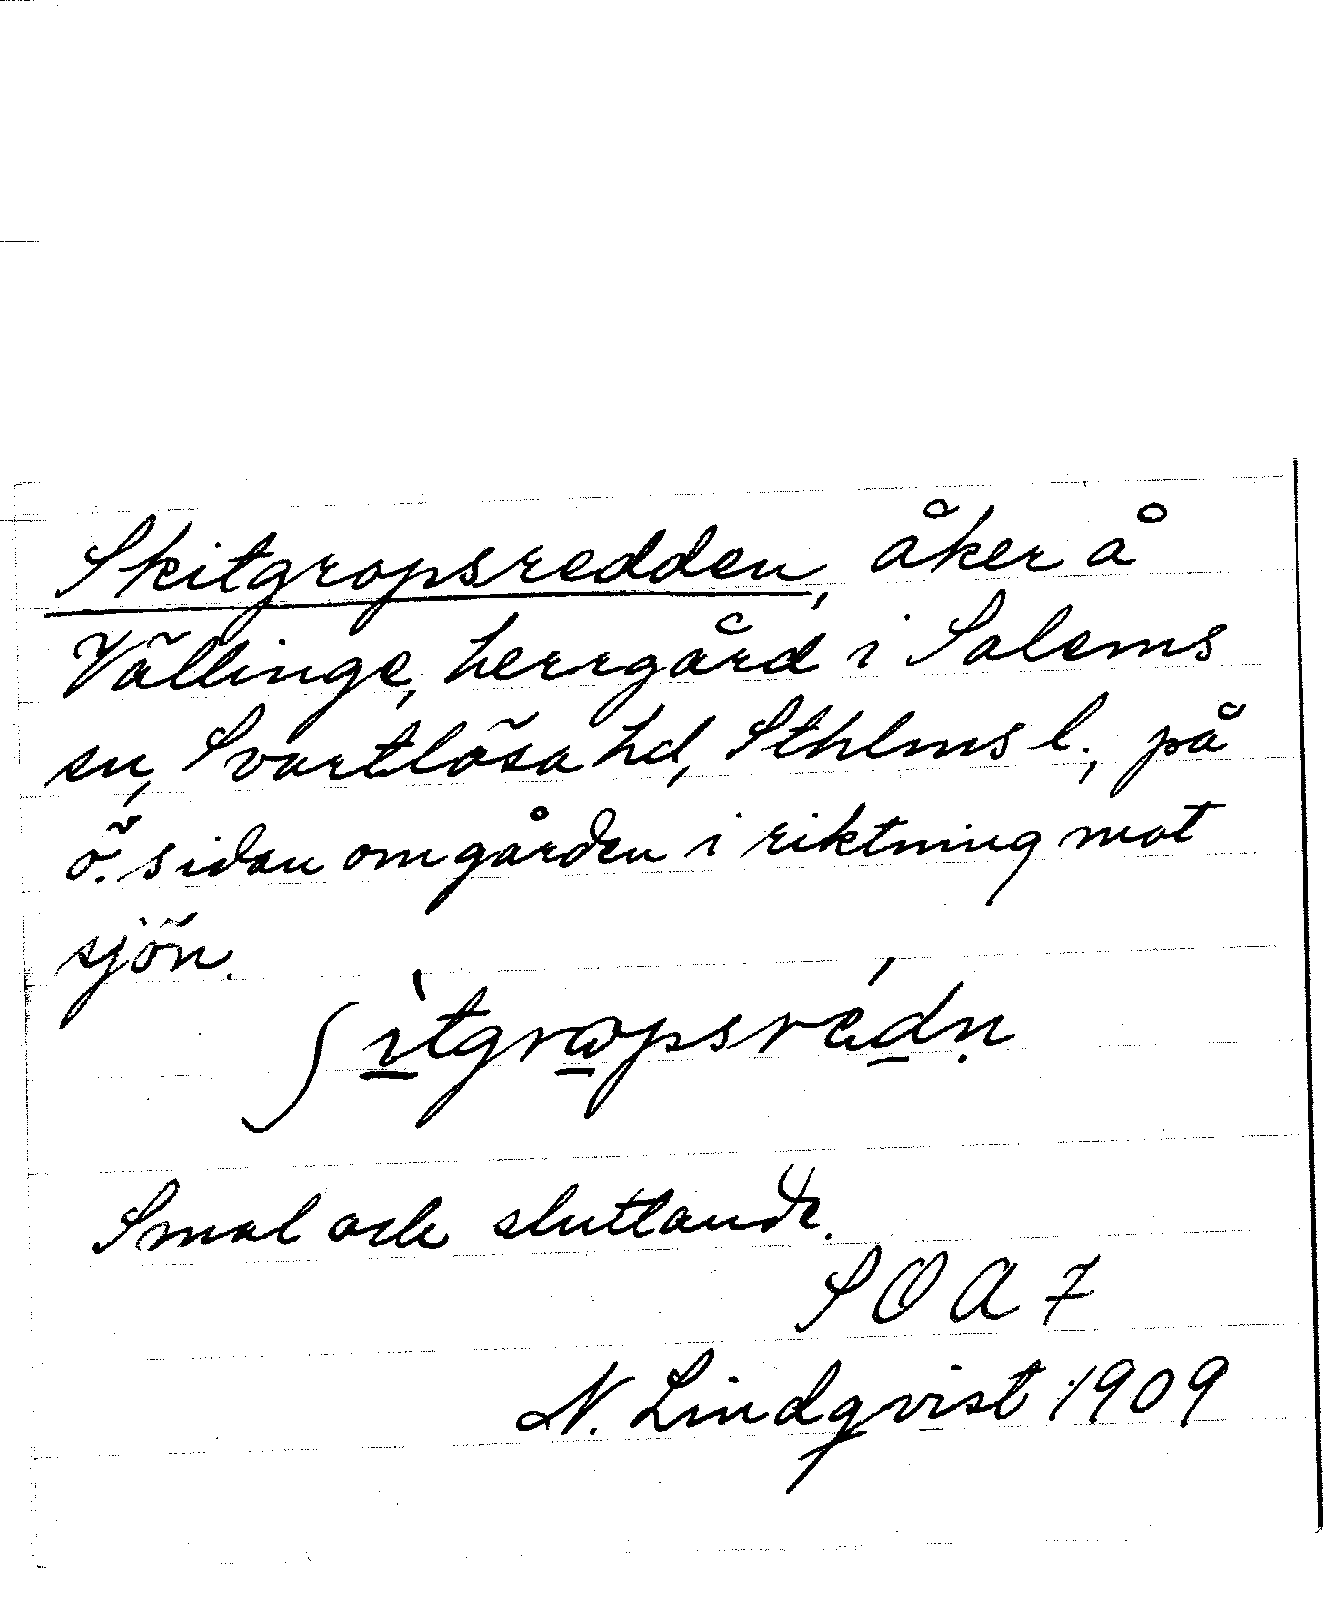 Skitgropsredden, åker å
Vällinge, herrgård i Salems
sn, Svartlösa hd, Sthlms l., på
ö. sidan om gården i riktning mot
sjön.
ʃìtgrωpsrédṇ
Smal och sluttande.
SOA 7
N. Lindqvist 1909